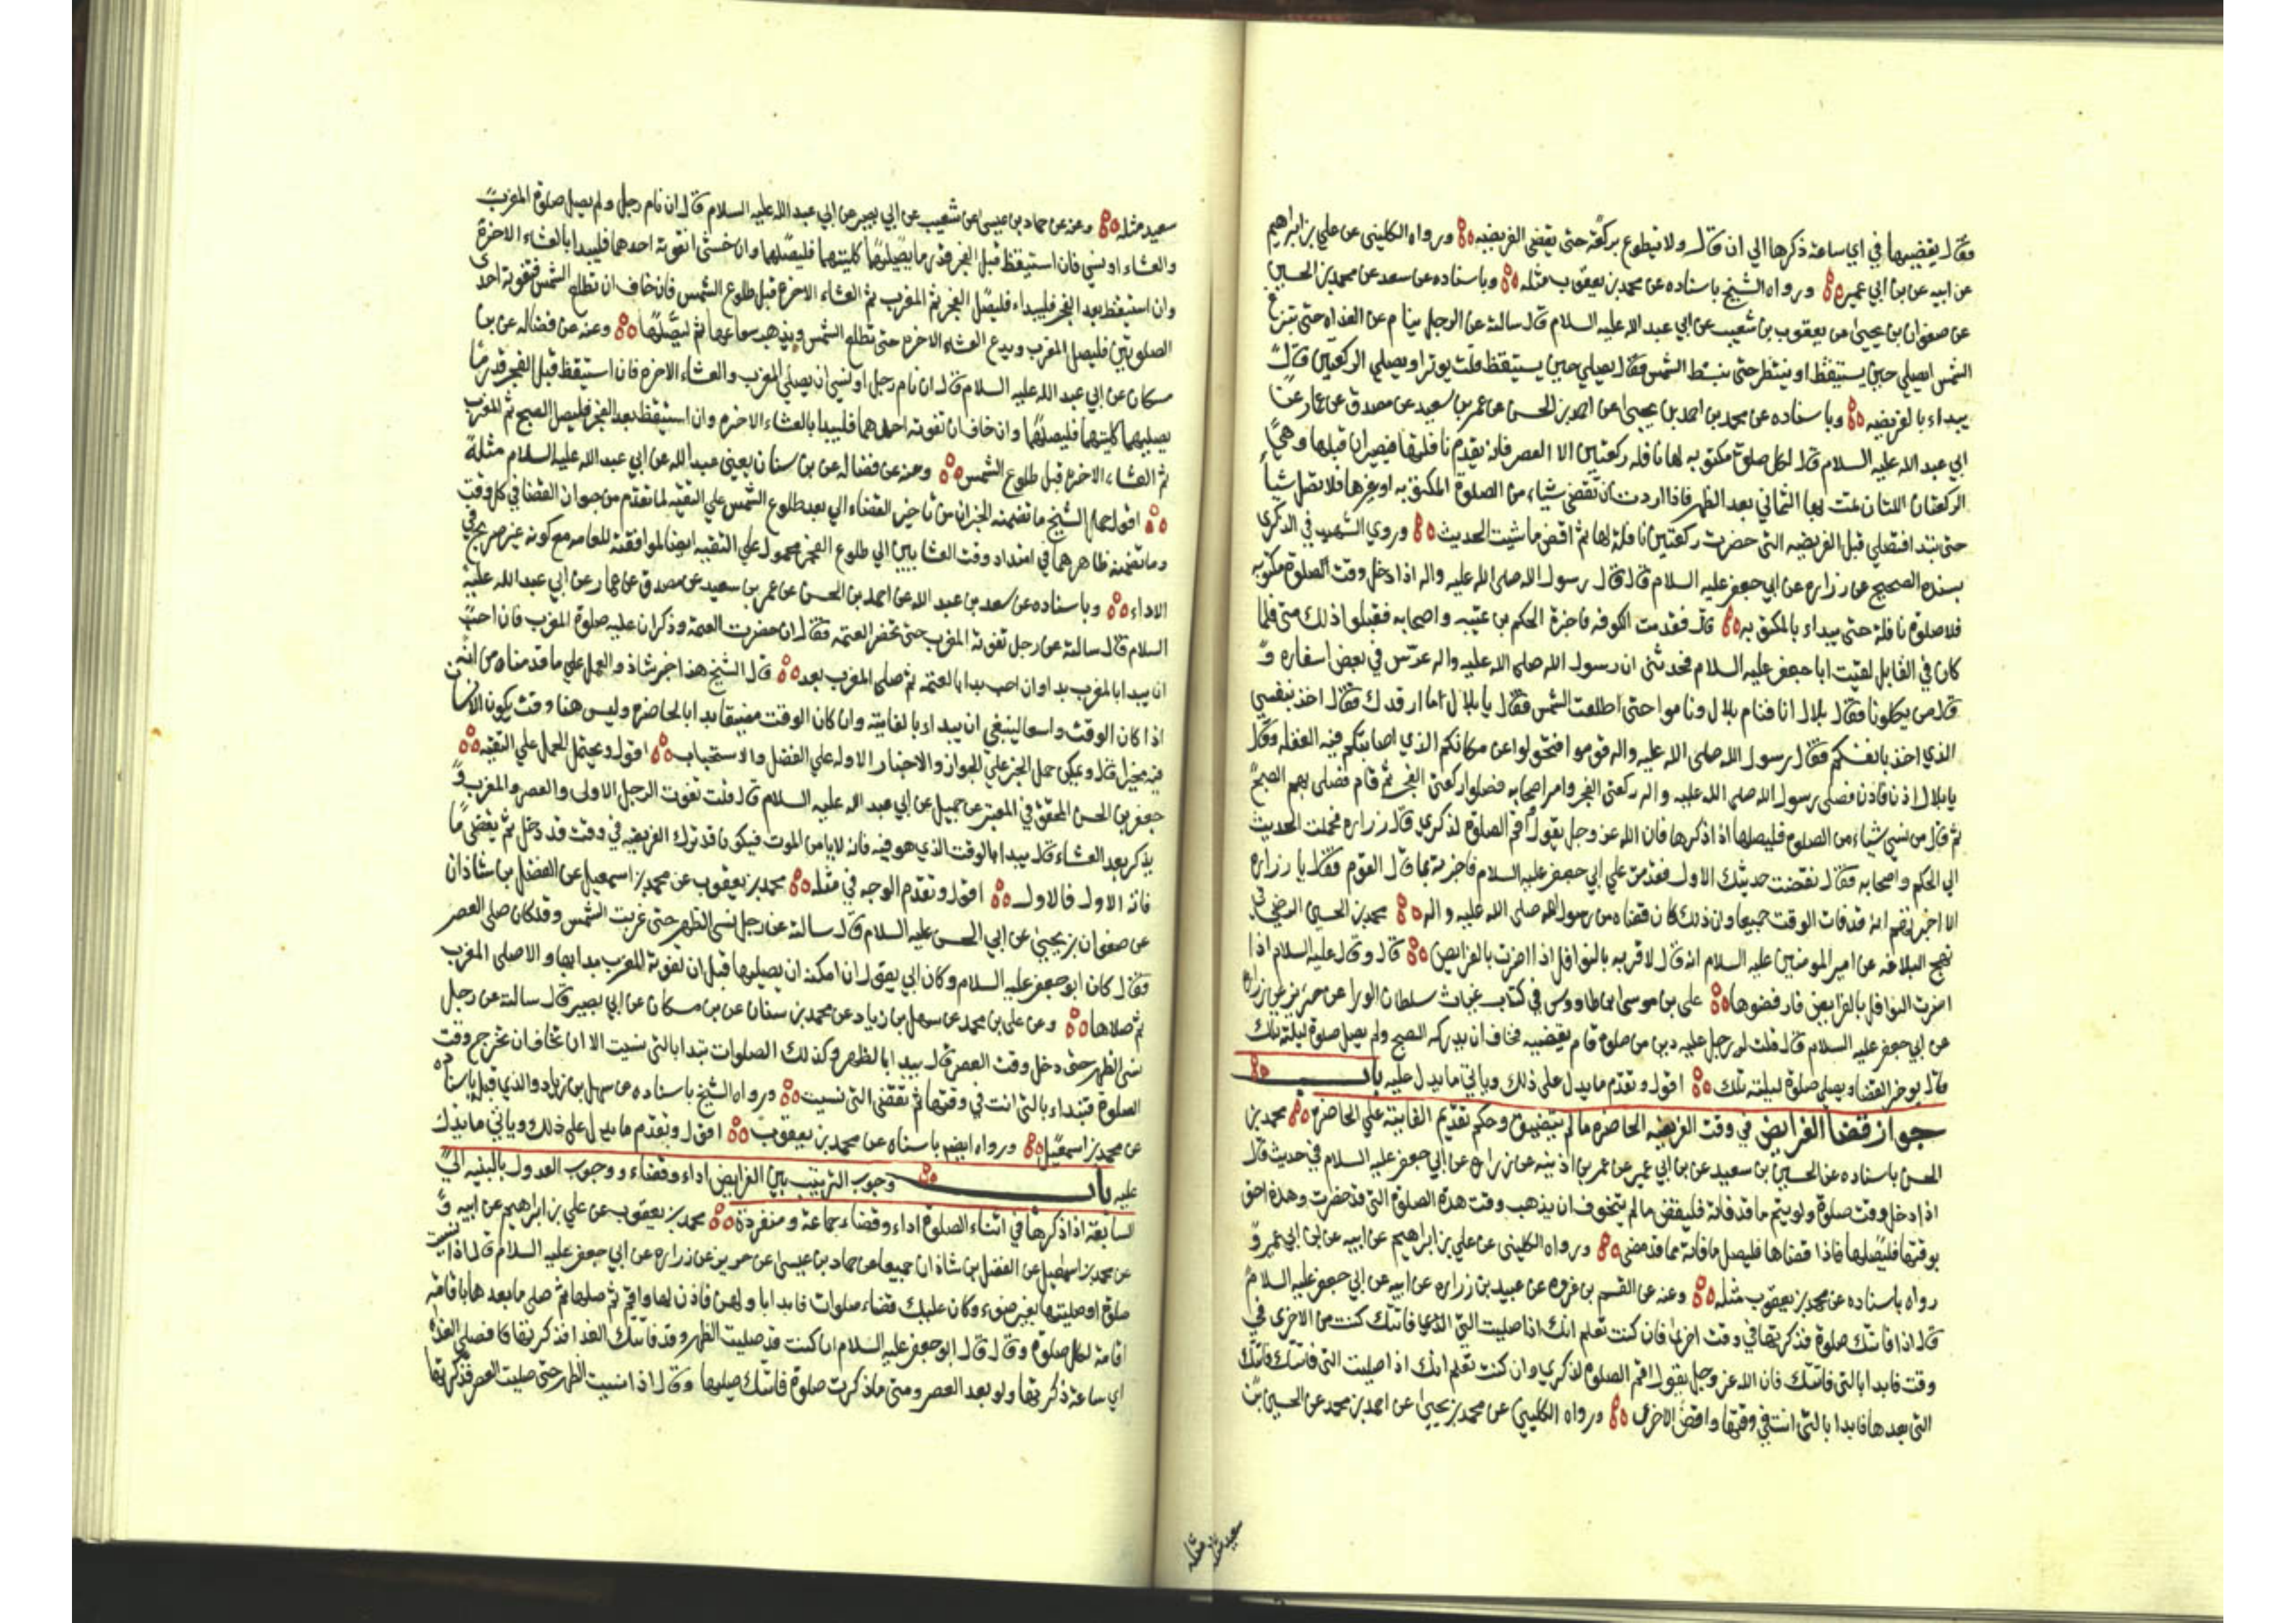 فقال يقضيها في اي ساعة ذكرها الي ان قال ولا يتطوع بركعة حتى يقضي الفريضه ورواه الكليني عن علي بن ابراهيم
عن ابيه عن بن ابي عمير ورواه الشيخ باسناده عن محمد بن يعقوب مثله وباسناده عن سعد عن محمد بن الحسين
عن صفوان بن يحيى عن يعقوب بن شعيب عن ابي عبد الله عليه السلام قال سالته عن الرجل ينام عن الغداه حتى تبزغ
الشمس ايصلي حين يستيقظ او ينتظر حتى تنبسط الشمس فقال يصلي حين يستيقظ قلت يوتر او يصلي الركعتين قال
يبداء بالفريضه وباسناده عن محمد بن احمد بن يحيى عن احمد بن الحسن عن عمر بن سعيد عن مصدق عن عمار عن
ابي عبد الله عليه السلام قال لكل صلوة مكتوبه لها نافله ركعتين الا العصر فانه يقدم نافلتها فيصيران قبلها وهي
الركعتان اللتان تمت بها الثماني بعد الظهر فاذا اردت ان تقضي شياء من الصلوة المكتوبه او غيرها فلا تصل شيأ
حتى تبدا فتصلي قبل الفريضه التي حضرت ركعتين نافلة لها ثم اقض ما شيت الحديث وروي الشهيد في الذكرى
بسنده الصحيح عن زراره عن ابي جعفر عليه السلام قال قال رسول الله صلى الله عليه واله اذا دخل وقت الصلوة مكتوبه
فلا صلوة نافلة حتى يبداء بالمكتوبه قال فقدمت الكوفه فاخبرة الحكم بن عتيبه واصحابه فقبلوا ذلك مني فلما
كان في القابل لقيت ابا جعفر عليه السلام فحدثني ان رسول الله صلى الله عليه واله عرس في بعض اسفاره و
قال من يكلونا فقال بلال انا فنام بلال وناموا حتى اطلعت الشمس فقال يا بلال ما ارقدك فقال اخذ بنفسي
الذي اخذ بانفسكم فقال رسول الله صلى الله عليه واله قوموا فتحولوا عن مكانكم الذي اصابتكم فيه الغفله وقال
يا بلال اذن فاذن فصلى رسول الله صلى الله عليه واله ركعتي الفجر وامر اصحابه فصلوا ركعتي الفجر ثم قام فصلى بهم الصبح
ثم قال من نسي شياء من الصلوة فليصلها اذا ذكرها فان الله عز وجل يقول اقم الصلوة لذكري قال زراره فحملت الحديث
الي الحكم واصحابه فقال نقضت حديثك الاول فقدمت علي ابي جعفر عليه السلام فاخبرته بما قال القوم فقال يا زراره
الا اخبرتهم انه قد فات الوقت جميعا وان ذلك كان قضاء من رسول الله صلى الله عليه واله محمد بن الحسين الرضي في
نهج البلاغه عن امير المومنين عليه السلام انه قال لا قربه بالنوافل اذا اضرت بالفرايض قال وقال عليه السلام اذا
اضرت النوافل بالفرايض فارفضوها علي بن موسى ابن طاووس في كتاب غياث سلطان الورا عن حريز عن زراره
عن ابي جعفر عليه السلام قال قلت له رجل عليه دين من صلوة قام يقضيه فخاف ان يدركه الصبح ولم يصل صلوة ليلته تلك
قال يوخر القضاء ويصلي صلوة ليلته تلك اقول وتقدم ما يدل على ذلك وياتي ما يدل عليه باب
جواز قضاء الفرايض في وقت الفريضه الحاضره ما لم يتضيق وحكم تقديم الفايتة علي الحاضره محمد بن
الحسن باسناده عن الحسين بن سعيد عن بن ابي عمير عن عمر بن اذينه عن زراره عن ابي جعفر عليه السلام في حديث قال
اذا دخل وقت صلوة ولم يتم ما قد فاته فليقض ما لم يتخوف ان يذهب وقت هذه الصلوة التي قد حضرت وهذه احق
بوقتها فليصلها فاذا قضاها فليصل ما فاته مما قد مضى ورواه الكليني عن علي بن ابراهيم عن ابيه عن بن ابي عمير و
رواه باسناده عن محمد بن يعقوب مثله وعنه عن القسم بن عروه عن عبيد بن زراره عن ابيه عن ابي جعفر عليه السلام
قال اذا فاتتك صلوة فذكرتها في وقت اخرى فان كنت تعلم انك اذا صليت التي فاتتك كنت من الاخرى في
وقت فابدا بالتي فاتتك فان الله عز وجل يقول اقم الصلوة لذكري وان كنت تعلم انك اذا صليت التي فاتتك فاتتك
التي بعدها فابدا بالتي انت في وقتها واقض الاخرى ورواه الكليني عن محمد بن يحيى عن احمد بن محمد عن الحسين بن
سعيد مثله
سعيد مثله وعنه عن حماد بن عيسى عن شعيب عن ابي بصير عن ابي عبد الله عليه السلام قال ان نام رجل ولم يصل صلوة المغرب
والعشاء او نسي فان استيقظ قبل الفجر قدر ما يصليهما كليتهما فليصلهما وان خشي ان تفوته احدهما فليبدا بالعشاء الاخرة
وان استيقظ بعد الفجر فليبداء فليصل الفجر ثم المغرب ثم العشاء الاخره قبل طلوع الشمس فان خاف ان تطلع الشمس فتفوته احدى
الصلوتين فليصل المغرب ويدع العشاء الاخره حتى تطلع الشمس ويذهب شعاعها ثم ليصلها وعنه عن فضاله عن بن
مسكان عن ابي عبد الله عليه السلام قال ان نام رجل او نسي ان يصلي المغرب والعشاء الاخره فان استيقظ قبل الفجر قدر ما
يصليهما كليتهما فليصلهما وان خاف ان تفوته احداهما فليبدا بالعشاء الاخره وان استيقظ بعد الفجر فليصل الصبح ثم المغرب
ثم العشاء الاخره قبل طلوع الشمس وعنه عن فضاله عن بن سنان يعني عبد الله عن ابي عبد الله عليه السلام مثله
اقول حمل الشيخ ما تضمنه الخبران من تاخير القضاء الي بعد طلوع الشمس علي التقيه لما تقدم من جواز القضا في كل وقت
وما تضمنه ظاهرهما في امتداد وقت العشايين الي طلوع الفجر محمول علي التقيه ايضا لموافقته للعامه مع كونه غير صريح في
الاداء وباسناده عن سعد بن عبد الله عن احمد بن الحسن عن عمر بن سعيد عن مصدق عن عمار عن ابي عبد الله عليه
السلام قال سالته عن رجل تفوته المغرب حتى تحضر العتمه فقال ان حضرت العتمة وذكر ان عليه صلوة المغرب فان احب
ان يبدا بالمغرب بدا وان احب بدا بالعتمه ثم صلى المغرب بعد قال الشيخ هذا خبر شاذ والعمل علي ما قدمناه من انه
اذا كان الوقت واسعا ينبغي ان يبداء بالفايته وان كان الوقت مضيقا بدا بالحاضره وليس هنا وقت يكون الانسان
فيه مخيرا قال ويمكن حمل الخبر علي الجواز والاخبار الاوله علي الفضل والاستحباب اقول ويحتمل الحمل علي التقيه
جعفر بن الحسن المحقق في المعتبر عن جميل عن ابي عبد الله عليه السلام قال قلت تفوت الرجل الاولى والعصر والمغرب و
يذكر بعد العشاء قال يبدا بالوقت الذي هو فيه فانه لا يامن الموت فيكون قد ترك الفريضه في وقت قد دخل ثم يقضي ما
فاته الاول فالاول اقول وتقدم الوجه في مثله محمد بن يعقوب عن محمد بن اسمعيل عن الفضل بن شاذان
عن صفوان بن يحيى عن ابي الحسن عليه السلام قال سالته عن رجل نسى الظهر حتى غربت الشمس وقد كان صلى العصر
فقال كان ابو جعفر عليه السلام وكان ابي يقول ان امكنه ان يصليها قبل ان تفوته المغرب بدا بها والا صلى المغرب
ثم صلاها وعن علي بن محمد عن سهل بن زياد عن محمد بن سنان عن بن مسكان عن ابي بصير قال سالته عن رجل
نسى الظهر حتى دخل وقت العصر قال يبدا بالظهر وكذلك الصلوات تبدا بالتي نسيت الا ان تخاف ان تخرج وقت
الصلوة فتبداء بالتي انت في وقتها ثم تقضي التي نسيت ورواه الشيخ باسناده عن سهل بن زياد والذي قبله باسناده
عن محمد بن اسمعيل ورواه ايضم باسناده عن محمد بن يعقوب اقول وتقدم ما يدل على ذلك وياتي ما يدل
عليه باب وجوب الترتيب بين الفرايض اداء وقضاء ووجوب العدول بالنيه الي
السابقة اذا ذكرها في اثناء الصلوة اداء وقضاء جماعة ومنفردة محمد بن يعقوب عن علي بن ابراهيم عن ابيه و
عن محمد بن اسمعيل عن الفضل بن شاذان جميعا عن حماد بن عيسى عن حريز عن زراره عن ابي جعفر عليه السلام قال اذا نسيت
صلوة او صليتها بغير ضوء وكان عليك قضاء صلوات فابدا باولهن فاذن لها واقم ثم صلها ثم صلي ما بعدها باقامة
اقامة لكل صلوة وقال قال ابو جعفر عليه السلام ان كنت قد صليت الظهر وقد فاتتك الغداة فذكرتها فصل الغداة
اي ساعة ذكرتها ولو بعد العصر ومتى ما ذكرت صلوة فاتتك صليها وقال اذا نسيت الظهر حتى صليت العصر فذكرتها